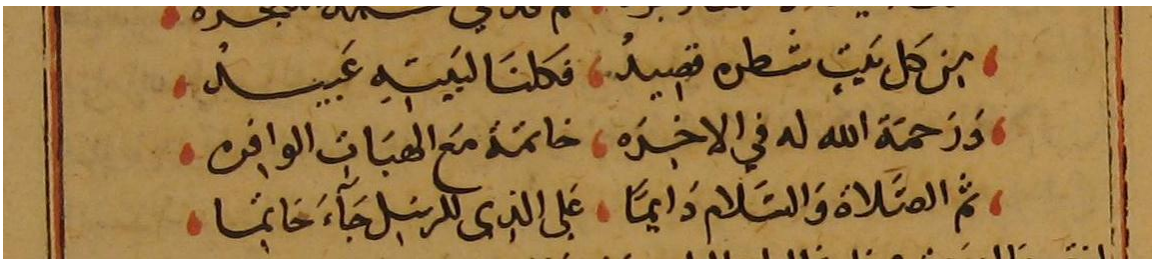 من كل بَيتٍ شطره قصِيدُ فكلنا لبَيتِهِ عَبيدُ
وَرَحمَة الله له في الاخِرَه خاتمَة مَع الهبَاتِ الوافره
ثم الصَّلاة وَالسَّلام دَايمًا عَلى الذي للرسِل جَآءَ خَاتِمًا